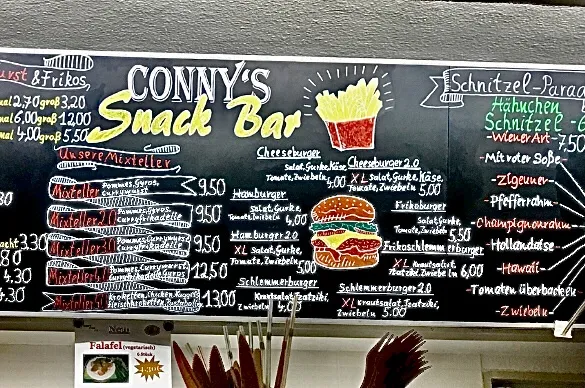 urst & Frikos
mal 2,70 groß 3,20
mal 6,00 groß 12,00
mal 4,00 groß 5,50
acht 3.30
4.30
4.30
CONNY'S
Snack Bar
Unsere Mixteller
Mixteller Pommes, Gyros, Currywurst 9,50
Mixteller 2.0 Pommes, Gyros, Currifrikadelle 9,50
Mixteller 3.0 Pommes, Currywurst 9,50
Mixteller 4.0 Pommes, Currywurst, 12,50
Mixteller 5.0 Kroketten, Chicken Nuggets 13,00
Cheeseburger
Salat, Gurke, Käse,
Tomate, Zwiebeln 4,00
Hamburger
Salat, Gurke,
Tomate, Zwiebeln 4,00
Hamburger 2.0
XL Salat, Gurke,
Tomate, Zwiebeln 5,00
Schlemmerburger
Krautsalat, Tzatziki,
Zwiebeln 4,00
Cheeseburger 2.0
XL Salat, Gurke, Käse,
Tomate, Zwiebeln 5,00
Frikoburger
Salat, Gurke,
Tomate, Zwiebeln 5,50
Frikoschlemmerburger
XL Krautsalat,
Tzatziki, Zwiebeln 6,00
Schlemmerburger 2.0
XL Krautsalat, Tzatziki,
Zwiebeln 5,00
Schnitzel-Parad
Hähnchen
Schnitzel - 6
-Wiener Art- 7,50
-Mit roter Soße-
-Zigeuner-
-Pfefferrahm-
-Champignonrahm-
-Hollandaise-
-Hawaii-
-Tomaten überbacken
-Zwiebeln-
Neu
Falafel (vegetarisch)
6 Stück